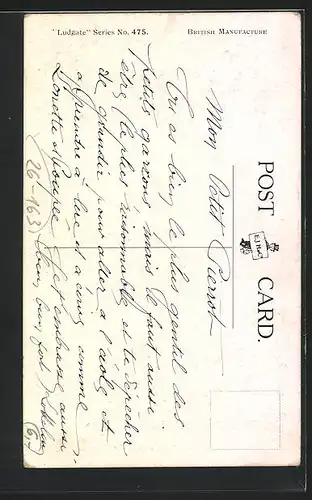 "Ludgate" Series No. 475.
BRITISH MANUFACTURE
POST CARD.
E.J.H. & Co
Mon Petit Pierrot
Tu es bien le plus gentil des
petits garçons mais il faut aussi
être le plus raisonnable et te dépêcher
de grandir pour aller à l'école et
apprendre à lire et à écrire comme
Pierre. Je t'embrasse aussi
bien bien fort
(26-163)